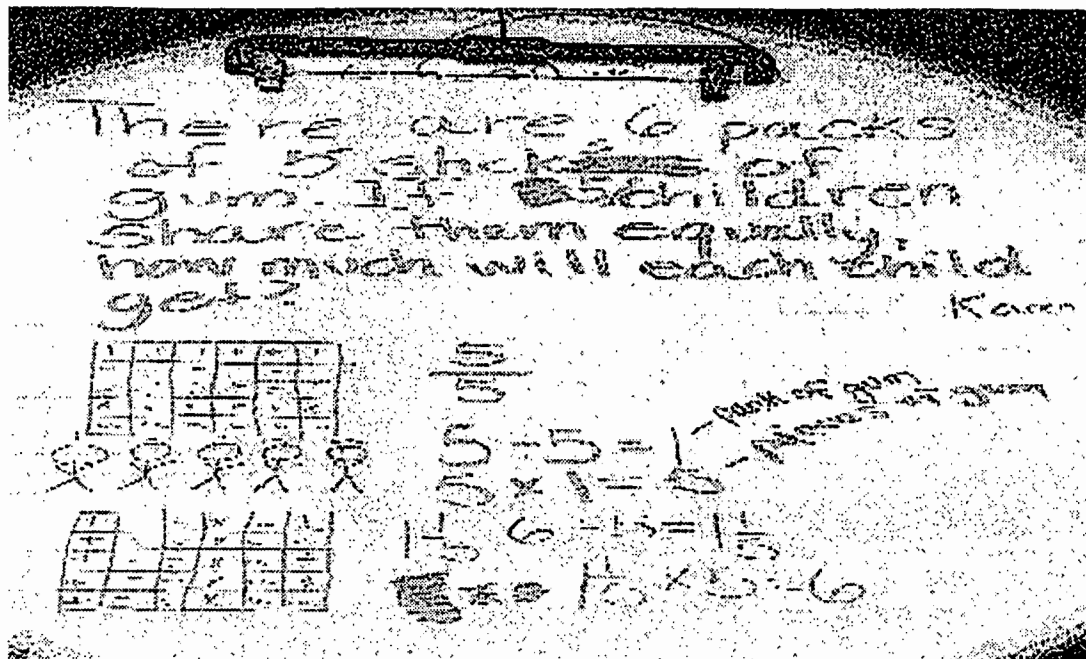 There are 6 packs
of 5 of
gum. If 5 children
share them equally
how much will each child
get?
Karen
5
5
5 ÷ 5 = 1 - pack of gum
5 × 1 = 5 - pieces of gum
6 ÷ 5 = 1 1/5
1 1/5 × 5 = 6